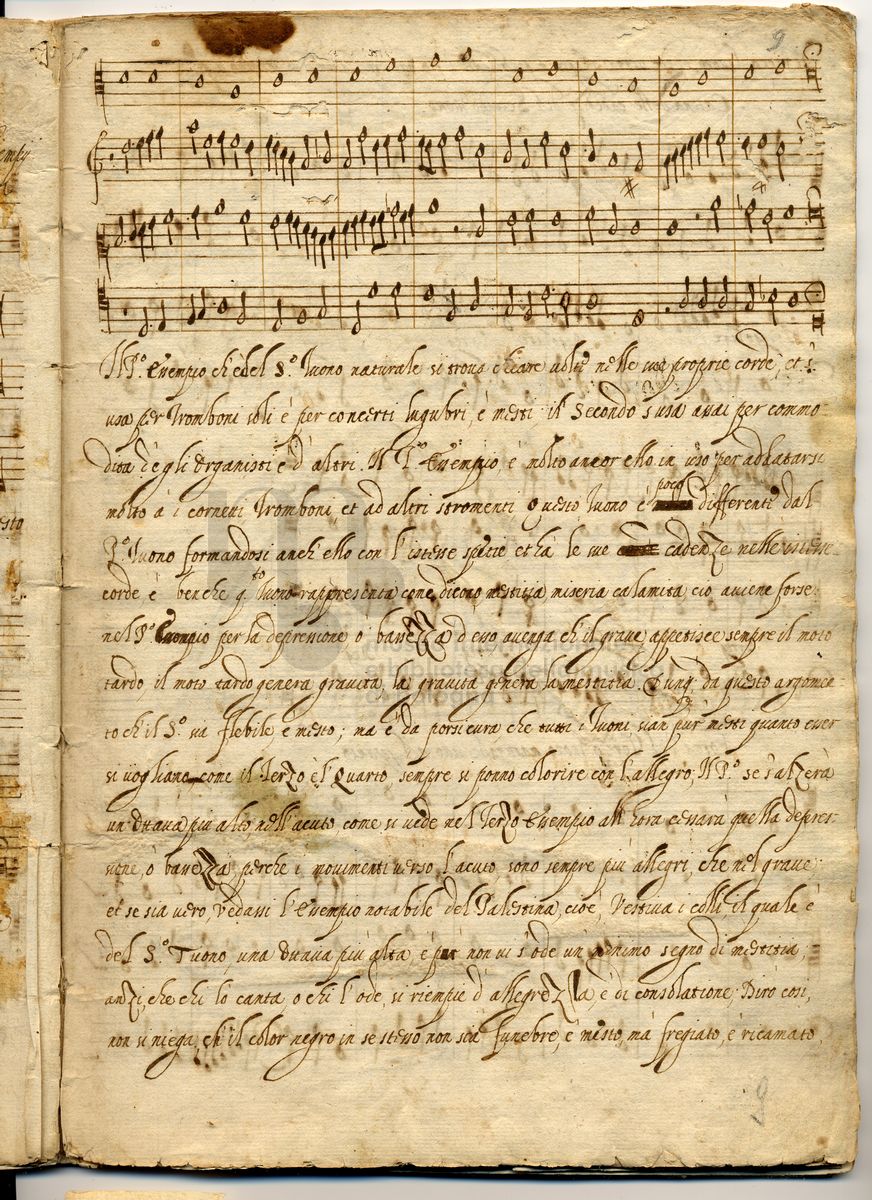 9
Il P.º Essempio ch'è del S.º Tuono naturale si trova chiare volte nelle sue proprie corde, et s'
usa per Tromboni soli è per concerti lugubri, è mesti il Secondo s'usa assai per commo
dità de gli Organisti è d'altri. Il T.º Ess.º è molto ancor ello in uso per addatarsi
molto à i cornetti Tromboni et ad altri stromenti Questo Tuono è poco differente dal
P.º Tuono formandosi anch'ello con l'istesse spetie et hà le sue cadenze nelle istesse
corde è benche q.to Tuono rappresenta come dicono mestitia miseria calamità ciò aviene forse
nel P.º Essempio per la depressione ò bassezza d'esso avenga ch'il grave appetisce sempre il moto
tardo, il moto tardo genera gravità, la gravità genera la mestitia. Dunq; da questo argomen-
to ch'il S.º sia flebile, è mesto; ma è da por sicura che tutti i Tuoni sian pur mesti quanto esser
si vogliano come il Terzo è l'Quarto sempre si ponno colorire con l'allegro; Il P.º se s'alzerà
un'Ottava più alto, nell'acuto come si vede nel Terzo Essempio all'hora cessarà quella depres-
sione, ò bassezza, perche i movimenti verso l'acuto sono sempre più allegri, che nel grave;
et se sia vero, vedassi l'Essempio notabile del Palestina, cioè, Vestiva i colli il quale è
del S.º Tuono, una Ottava più alta, è pur non vi s'ode un minimo segno di mestitia;
anzi, che chi lo canta o chi l'ode, si riempie d'allegrezza, è di consolatione; Dirò così,
non si niega, ch'il color negro in se stesso non sia funebre, è mesto, mà fregiato, è ricamato,
9